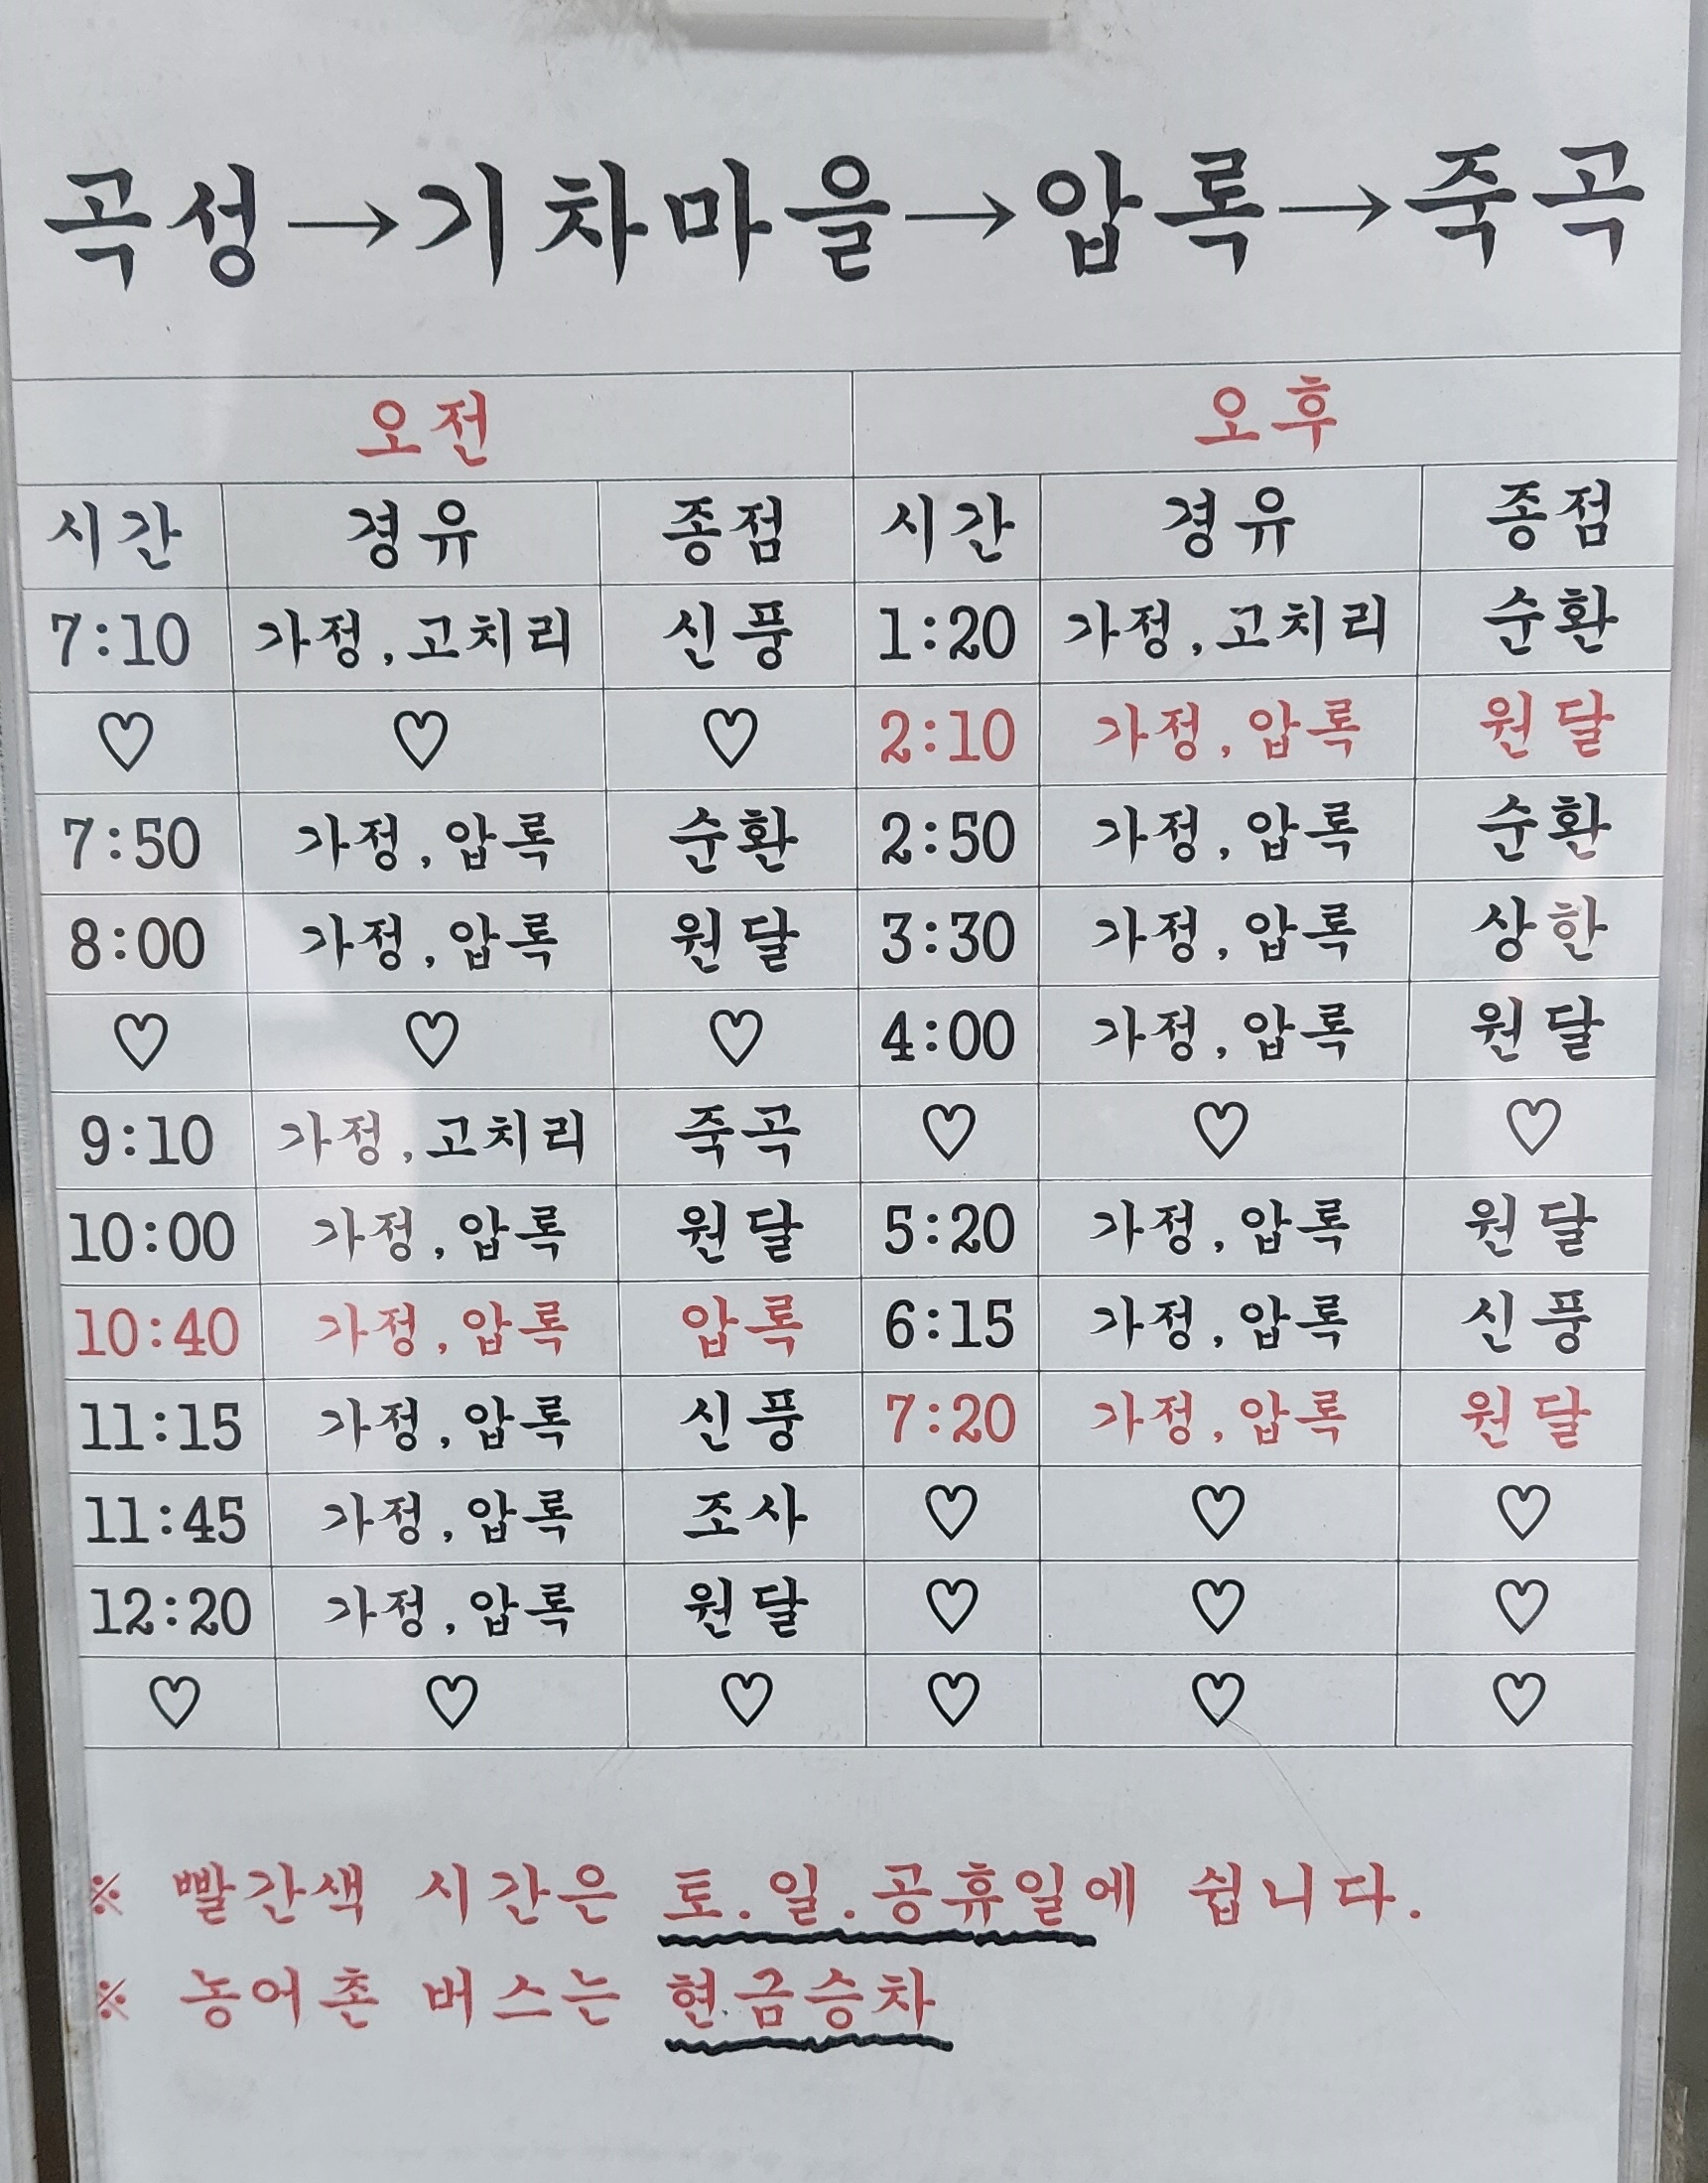 곡성→기차마을→압록→죽곡
오전 오후
시간 경유 종점 시간 경유 종점
7:10 가정,고치리 신풍 1:20 가정,고치리 순환
♡ ♡ ♡ 2:10 가정,압록 원달
7:50 가정,압록 순환 2:50 가정,압록 순환
8:00 가정,압록 원달 3:30 가정,압록 상한
♡ ♡ ♡ 4:00 가정,압록 원달
9:10 가정,고치리 죽곡 ♡ ♡ ♡
10:00 가정,압록 원달 5:20 가정,압록 원달
10:40 가정,압록 압록 6:15 가정,압록 신풍
11:15 가정,압록 신풍 7:20 가정,압록 원달
11:45 가정,압록 조사 ♡ ♡ ♡
12:20 가정,압록 원달 ♡ ♡ ♡
♡ ♡ ♡ ♡ ♡ ♡
※ 빨간색 시간은 토.일.공휴일에 쉽니다.
※ 농어촌 버스는 현금승차